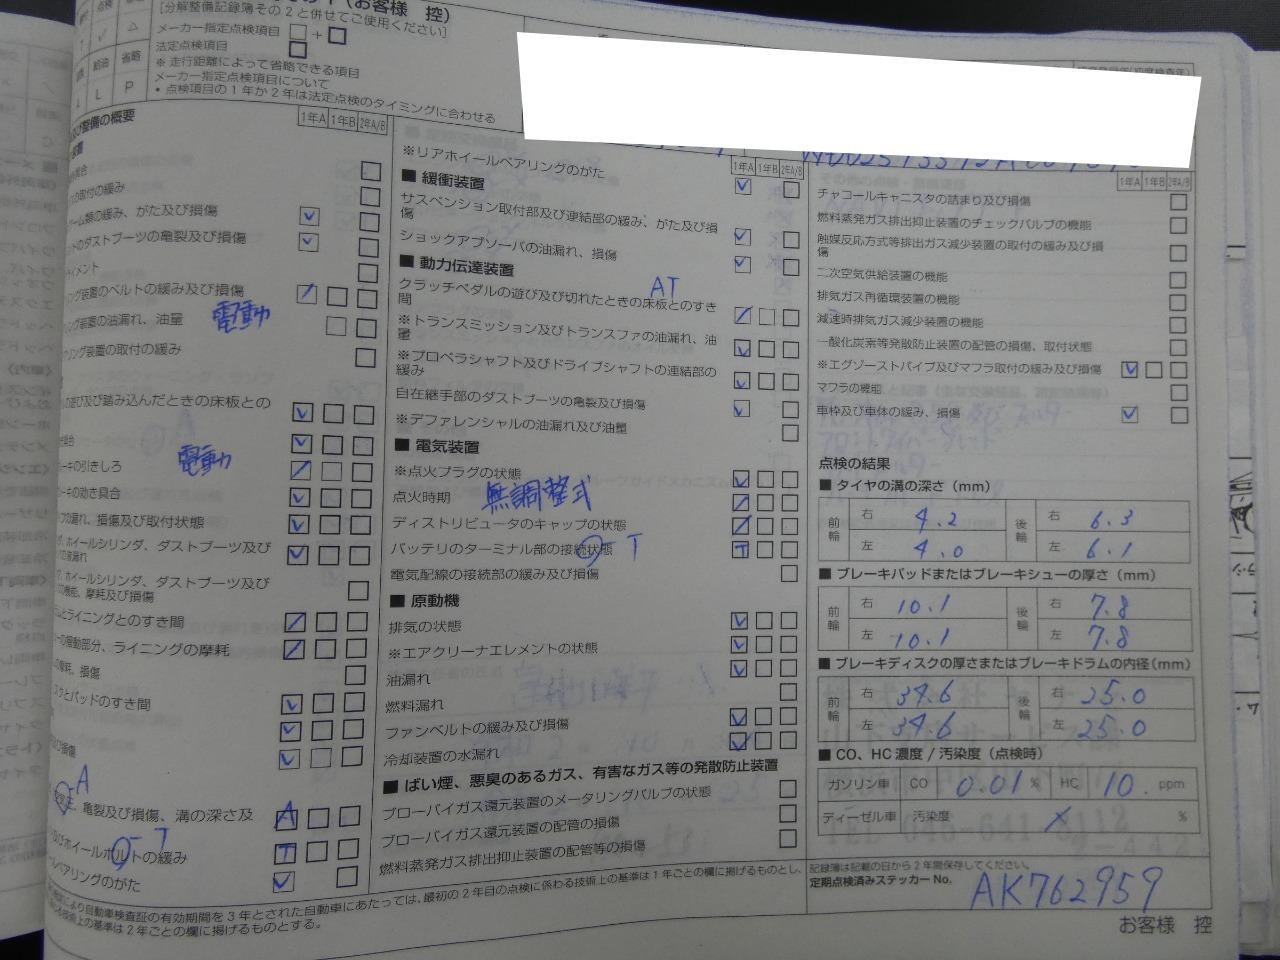 (お客様 控)
[分解整備記録簿その2と併せてご使用ください]
点検
メーカー指定点検項目 □+□
法定点検項目 □
給油 省略
L P
※ 走行距離によって省略できる項目
メーカー指定点検項目について
・点検項目の1年か2年は法定点検のタイミングに合わせる
及び整備の概要
1年A 1年B 2年A/B
の取付の緩み
緩み、がた及び損傷
のダストブーツの亀裂及び損傷
装置のベルトの緩み及び損傷
装置の油漏れ、油量 電動
装置の取付の緩み
遊び及び踏み込んだときの床板との
の引きしろ 電動
の効き具合
漏れ、損傷及び取付状態
ホイールシリンダ、ダストブーツ及び
ホイールシリンダ、ダストブーツ及び
の機能、摩耗及び損傷
とライニングとのすき間
の摺動部分、ライニングの摩耗
の摩耗、損傷
とパッドのすき間
及び損傷
A
亀裂及び損傷、溝の深さ及 A
T
ホイールボルトの緩み T
ベアリングのがた
1年A 1年B 2年A/B
※リアホイールベアリングのがた
■ 緩衝装置
サスペンション取付部及び連結部の緩み、がた及び損
傷
ショックアブソーバの油漏れ、損傷
■ 動力伝達装置
AT
クラッチペダルの遊び及び切れたときの床板とのすき
間
※トランスミッション及びトランスファの油漏れ、油
量
※プロペラシャフト及びドライブシャフトの連結部の
緩み
自在継手部のダストブーツの亀裂及び損傷
※デファレンシャルの油漏れ及び油量
■ 電気装置
※点火プラグの状態
点火時期 無調整式
ディストリビュータのキャップの状態
バッテリのターミナル部の接続状態 T T
電気配線の接続部の緩み及び損傷
■ 原動機
排気の状態
※エアクリーナエレメントの状態
油漏れ
燃料漏れ
ファンベルトの緩み及び損傷
冷却装置の水漏れ
■ ばい煙、悪臭のあるガス、有害なガス等の発散防止装置
ブローバイガス還元装置のメータリングバルブの状態
ブローバイガス還元装置の配管の損傷
燃料蒸発ガス排出抑止装置の配管等の損傷
1年A 1年B 2年A/B
チャコールキャニスタの詰まり及び損傷
燃料蒸発ガス排出抑止装置のチェックバルブの機能
触媒反応方式等排出ガス減少装置の取付の緩み及び損
傷
二次空気供給装置の機能
排気ガス再循環装置の機能
減速時排気ガス減少装置の機能
一酸化炭素等発散防止装置の配管の損傷、取付状態
※エグゾーストパイプ及びマフラ取付の緩み及び損傷
マフラの機能
車枠及び車体の緩み、損傷
点検の結果
■ タイヤの溝の深さ(mm)
前輪 右 4.2 後輪 右 6.3
左 4.0 左 6.1
■ ブレーキパッドまたはブレーキシューの厚さ(mm)
前輪 右 10.1 後輪 右 7.8
左 10.1 左 7.8
■ ブレーキディスクの厚さまたはブレーキドラムの内径(mm)
前輪 右 34.6 後輪 右 25.0
左 34.6 左 25.0
■ CO、HC濃度/汚染度(点検時)
ガソリン車 CO 0.01 % HC 10. ppm
ディーゼル車 汚染度 %
により自動車検査証の有効期間を3年とされた自動車にあたっては、最初の2年目の点検に係わる技術上の基準は1年ごとの欄に掲げるものとし、
技術上の基準は2年ごとの欄に掲げるものとする。
記録簿は記載の日から2年間保存してください。
定期点検済みステッカーNo. AK762959
お客様 控